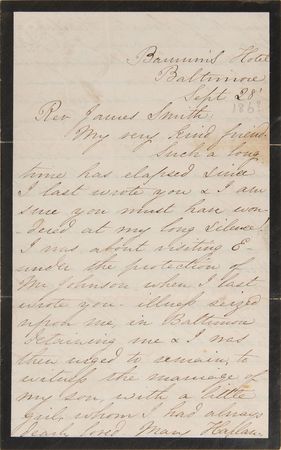 Barnum's Hotel
Baltimore
Sept 28'
186
Rev James Smith
My very kind friend.
Such a long
time has elapsed since
I last wrote you & I am
sure you must have won-
dered at my long silence!
I was about visiting E-
under the protection of
Mr Johnson when I last
wrote you - illness seized
upon me, in Baltimore
detaining me & I was
then urged to remain, to
witness the marriage of
my son, with a little
girl, whom I had always
dearly loved Mary Harlan